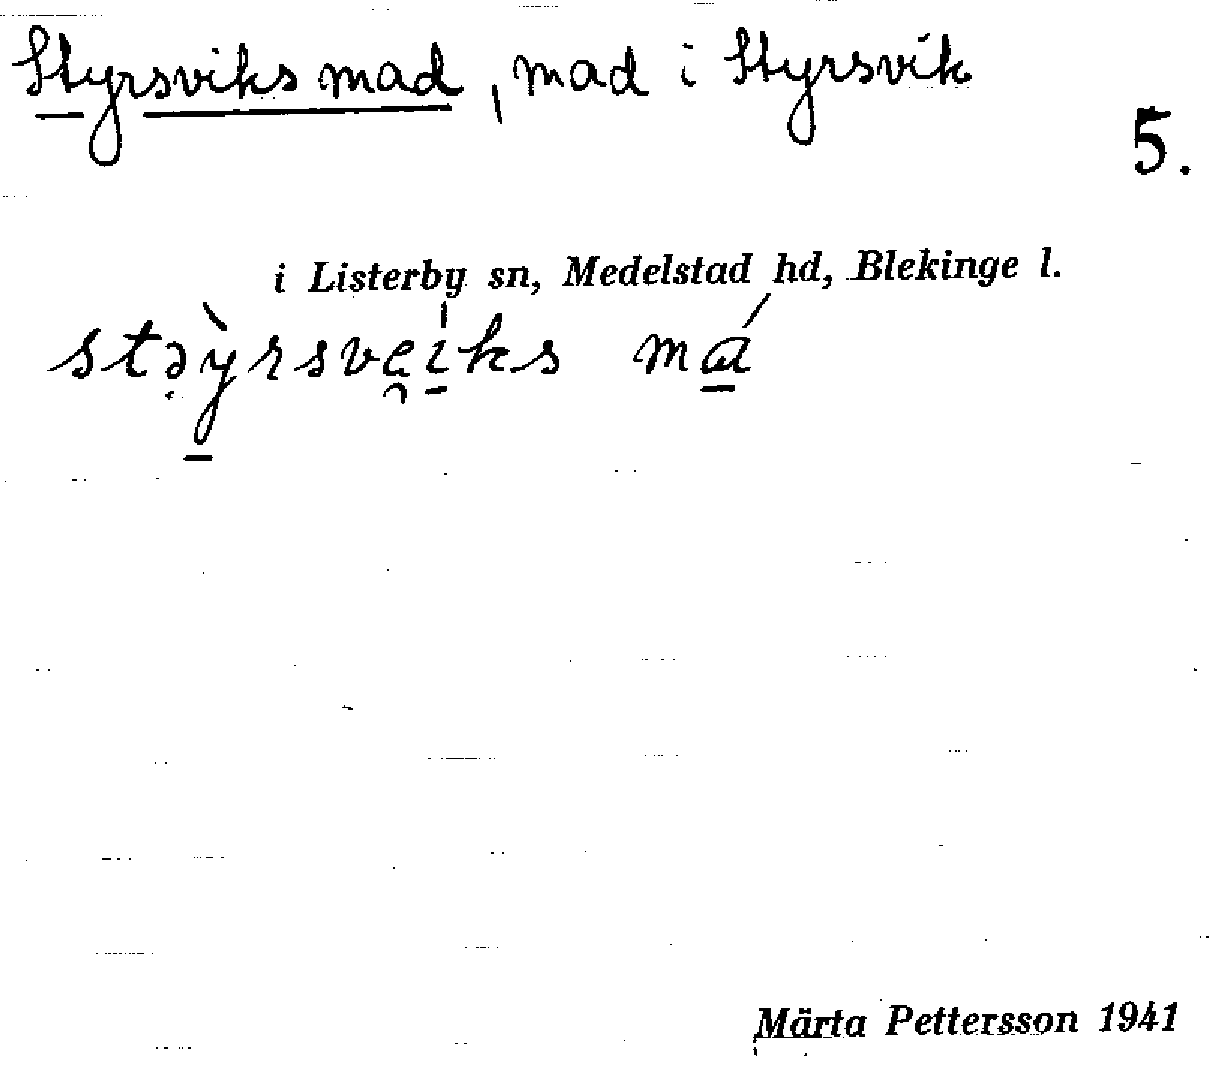 Styrsviks mad, mad i Styrsvik
5.
i Listerby sn, Medelstad hd, Blekinge l.
stə̣̀y̱rsve̯í̱ks má̱
Märta Pettersson 1941